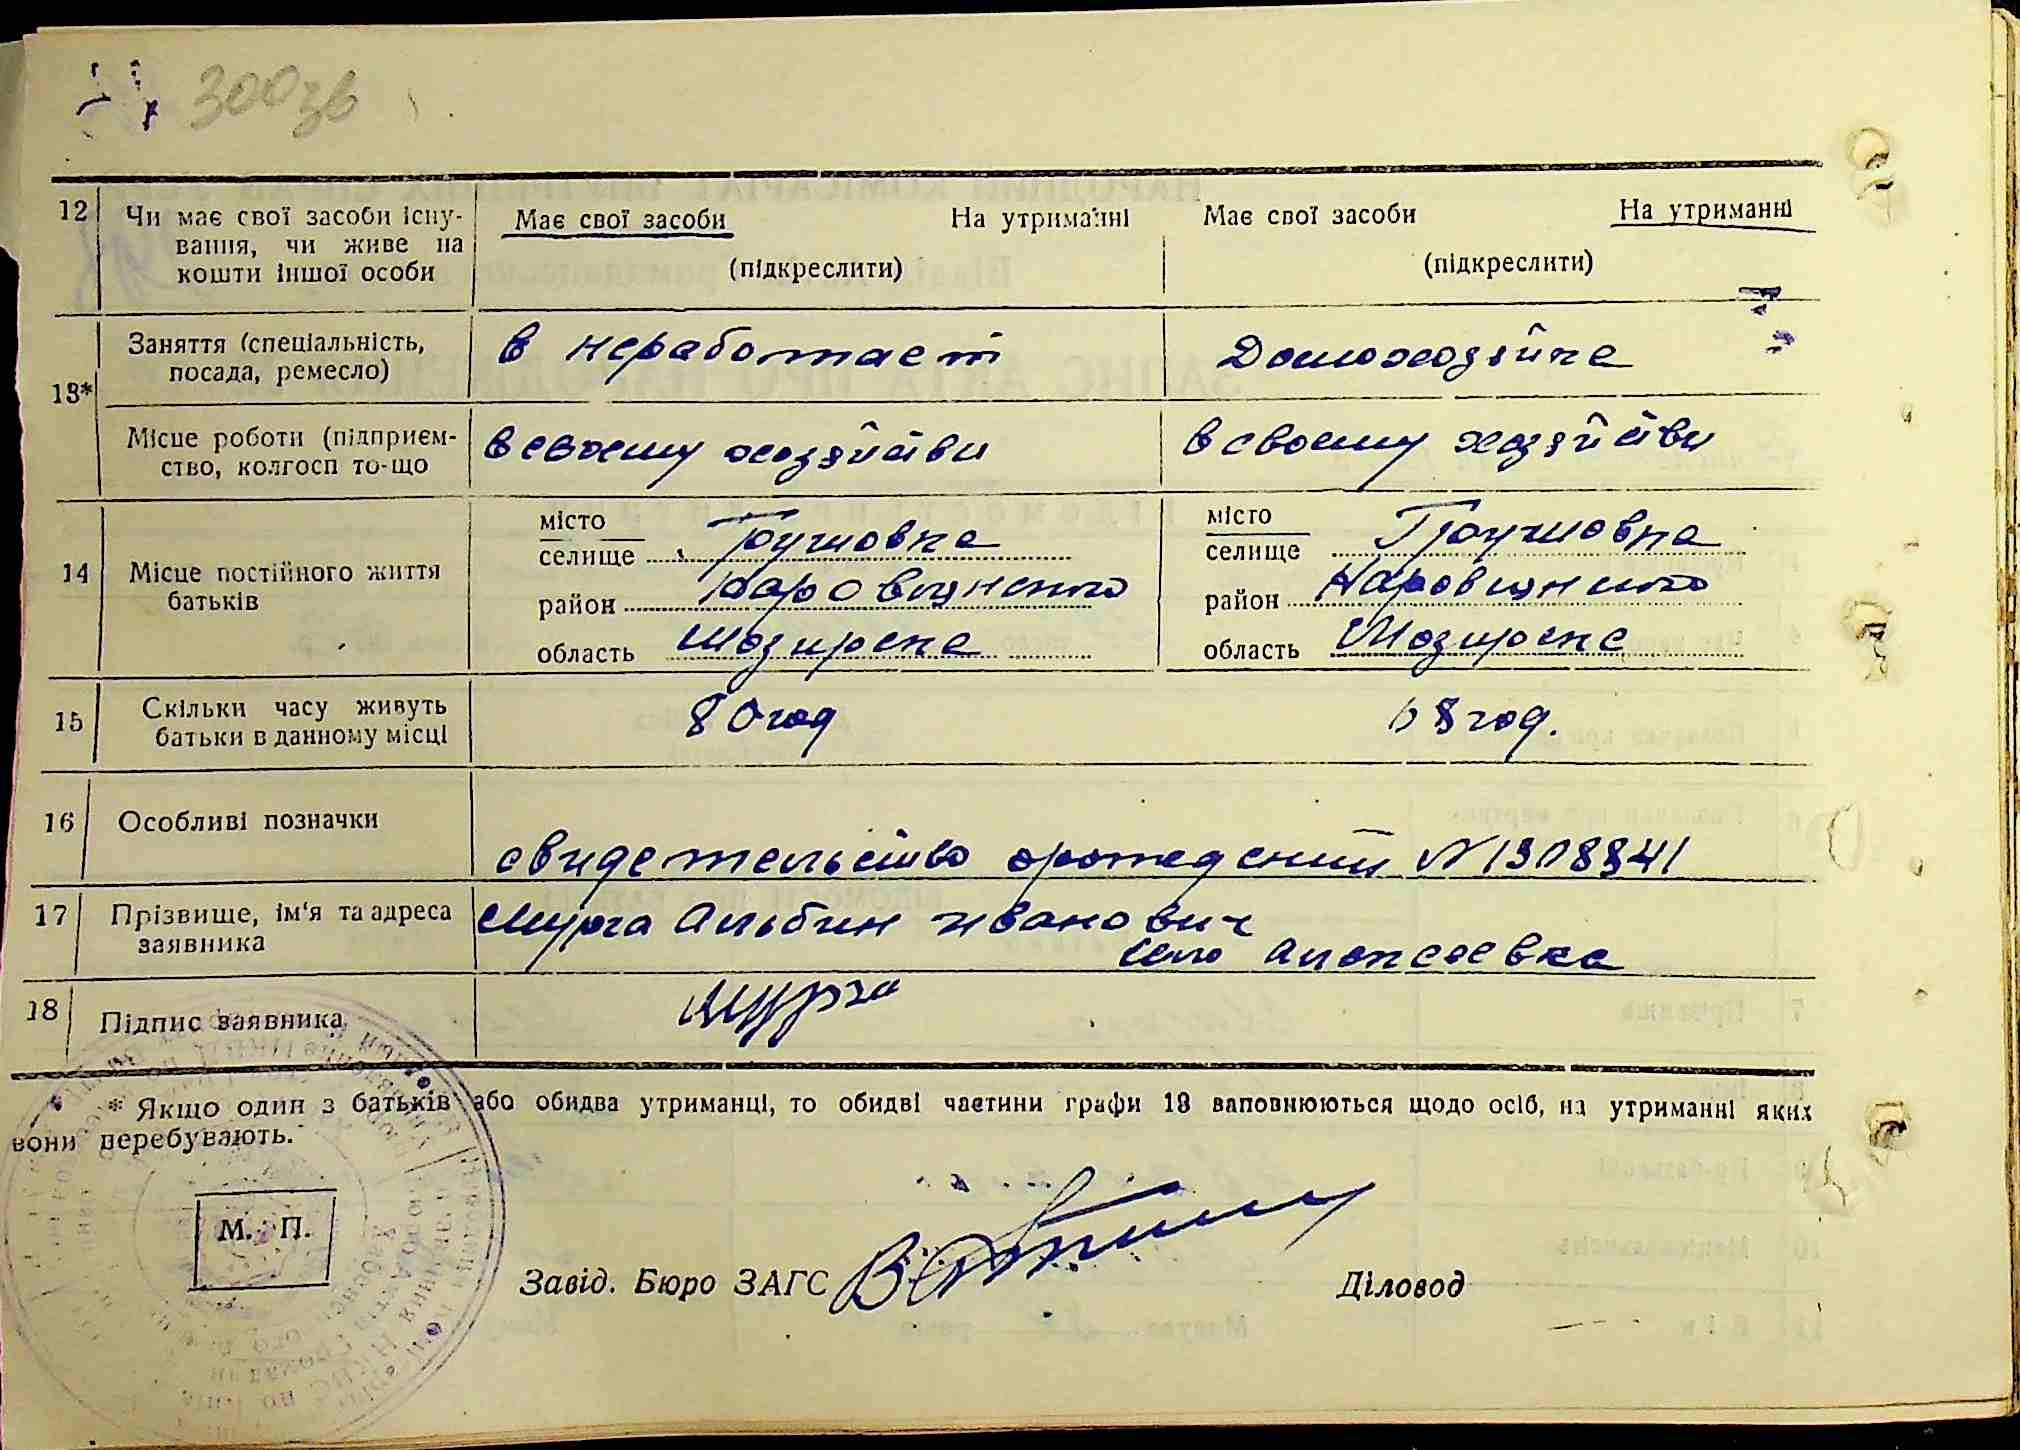 300зв
12 Чи має свої засоби існу- Має свої засоби На утриманні Має свої засоби На утриманні
вання, чи живе на
кошти іншої особи (підкреслити) (підкреслити)
13* Заняття (спеціальність, в неработает Домохозяйка
посада, ремесло)
Місце роботи (підприєм- всвоему хозяйстви всвоему хозяйстви
ство, колгосп то-що
14 Місце постійного життя батьків
місто
селище Грушовка
район Наровлянского
область Мозирска
місто
селище Грушовка
район Наровлянского
область Мозирска
15 Скільки часу живуть 80 год 68 год.
батьки в данному місці
16 Особливі позначки
свидетельство орождении №1308841
17 Прізвище, ім'я та адреса Мурга Альбин Иванович
заявника село Алексеевка
18 Підпис заявника Мурга
* Якщо один з батьків або обидва утриманці, то обидві частини графи 13 заповнюються щодо осіб, на утриманні яких
вони перебувають.
М. П.
Завід. Бюро ЗАГС Діловод